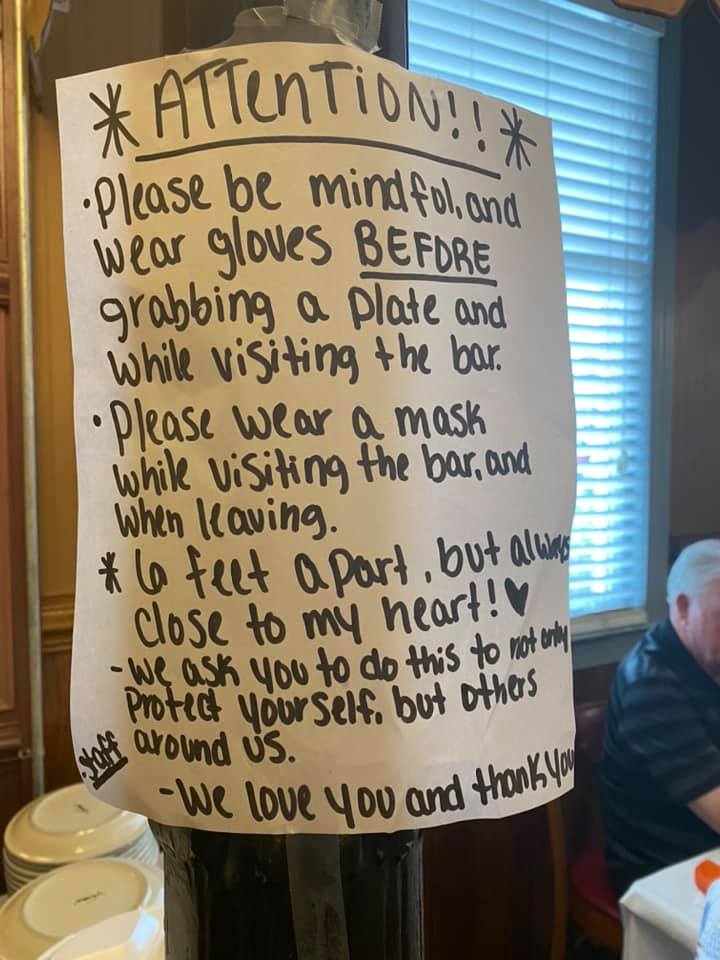 * ATTenTiON!! *
·Please be mindful, and
wear gloves BEFORE
grabbing a plate and
while visiting the bar.
·Please wear a mask
while visiting the bar, and
when leaving.
* 6 feet apart, but always
close to my heart! ♥
-we ask you to do this to not only
protect yourself, but others
around us.
-We love you and thank you
·staff